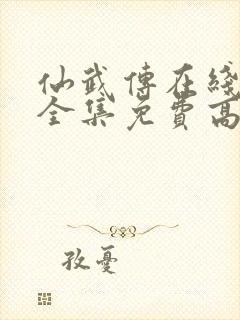 仙武傳在綫
全集免費高
孜憂